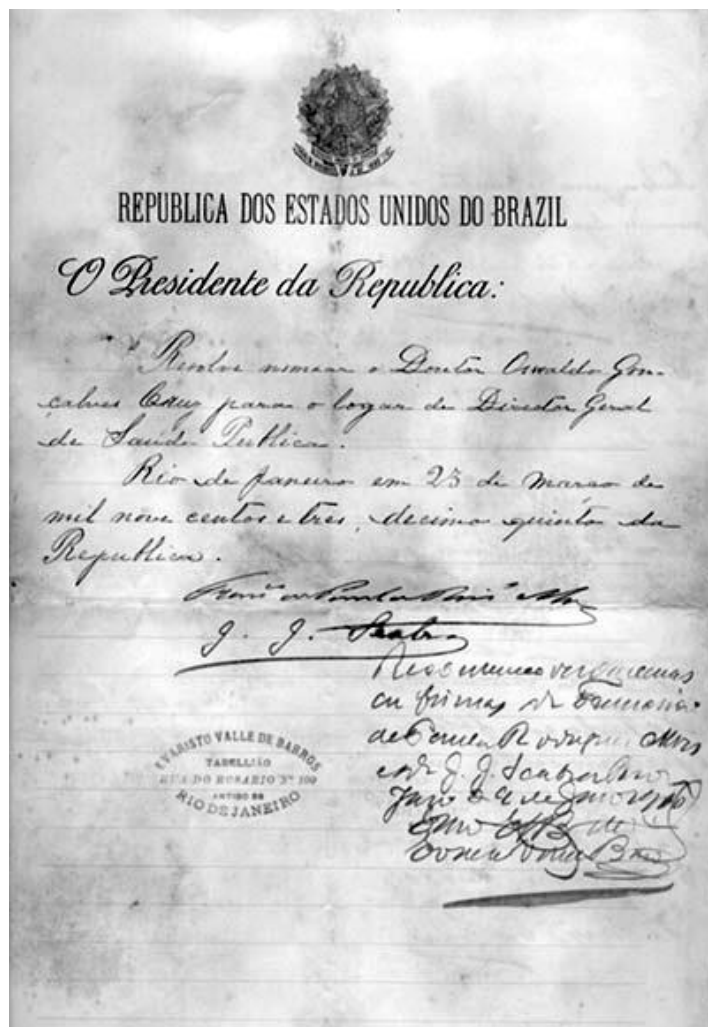 REPUBLICA DOS ESTADOS UNIDOS DO BRAZIL
O Presidente da Republica:
Resolve nomear o Doutor Oswaldo Gon-
çalves Cruz para o logar de Director Geral
de Saude Publica.
Rio de Janeiro em 23 de Março de
mil nove centos e tres, decimo quinto da
Republica.
J. J. Seabra
Reconheço verdadeiras
as firmas de Francisco
de Paula Rodrigues Alves
e de J. J. Seabra
EVARISTO VALLE DE BARROS
TABELLIÃO
RUA DO ROSARIO Nº 100
ANTIGO
RIO DE JANEIRO